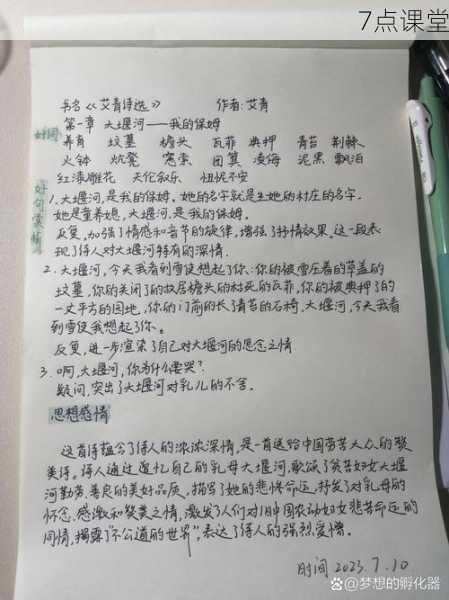 7点课堂
书名《艾青诗选》 作者:艾青
第一章 大堰河——我的保姆
好词
养育 坟墓 檐头 瓦菲 典押 青苔 荆棘
火钵 炕凳 窀穸 团箕 凌侮 泥黑 飘泊
红漆雕花 天伦叙乐 忸怩不安
好句赏析
1.大堰河,是我的保姆。她的名字就是生她的村庄的名字,
她是童养媳,大堰河,是我的保姆。
反复,加强了情感和音节的旋律,增强了抒情效果。这一段表
现了诗人对大堰河特有的深情。
2.大堰河,今天我看到雪使想起了你:你的被雪压着的草盖的
坟墓,你的关闭了的故居檐头的枯死的瓦菲,你的被典押了的
一丈平方的园地,你的门前的长了青苔的石椅,大堰河,今天我看
到雪使我想起了你。
反复,进一步渲染了自己对大堰河的思念之情
3.啊,大堰河,你为什么要哭?
疑问,突出了大堰河对乳儿的不舍。
思想感情
这首诗蕴含了诗人的浓浓深情,是一首送给中国劳苦大众的赞
美诗。诗人通过追忆自己的乳母大堰河,歌颂了贫苦妇女大堰
河勤劳、善良的美好品质,描写了她的悲惨命运,抒发了对乳母的
怀念、感激和赞美之情,激发了人们对旧中国农动妇女悲惨命运的
同情,揭露了"不公道的世界",表达了诗人的强烈爱憎。
时间2023.7.10
@梦想的孵化器